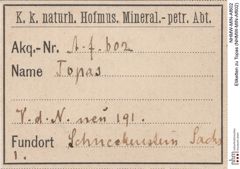 K. k. naturh. Hofmus. Mineral.-petr. Abt.
Akq.-Nr. A. f. 602
Name Topas
V. d. N. neu 191.
Fundort Schneckenstein Sachs
1.
NHMW-MIN-Af602
Etiketten zu Topas (NHMW-MIN-Af602)